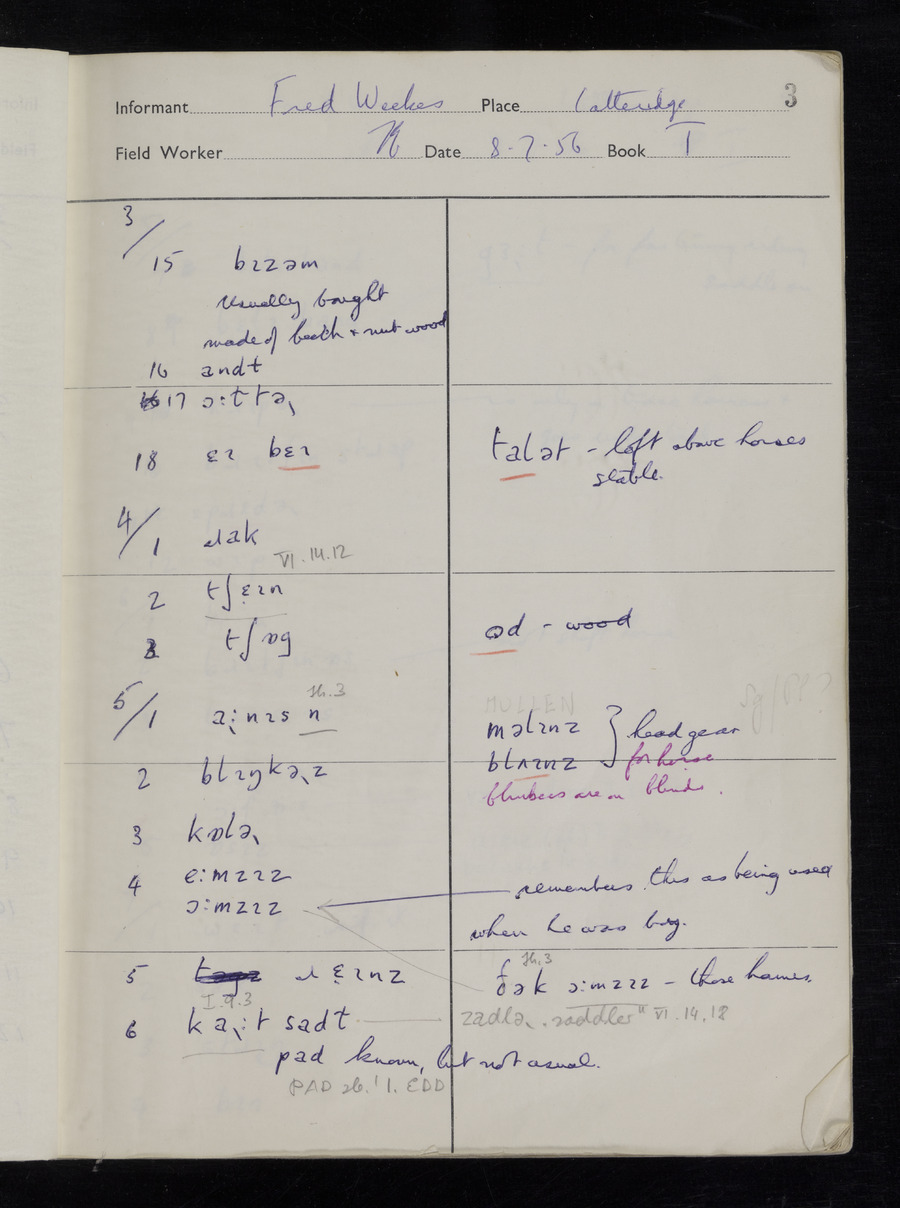 Informant Fred Weekes Place Latteridge 3
Field Worker Date 8.7.56 Book I
3/
15 bɪzəm
usually bought
made of beech + nut wood
16 andt
17 ɔ:ttə˞
18 ɛɪ bɛɪ
talət - loft above horses
stable.
4/1 ɹak
VI.14.12
2 tʃɛɪn
3 tʃɒg
əd - wood
5/1 a˞:nɪs n
sb.3
MULLEN
məlɪnz } head gear
blʌɪnz for horse
2 blɪŋkə˞z
blinkers are on blinds.
3 kɒlə˞
4 e:mzɪz
ɔ:mzɪz
remembers this as being used
when he was boy.
5 ɹɛɪnz
I.9.3
sb.3
ɔ:mzɪz - those hames.
6 ka˞:t sadt
zadlə˞ "saddler" VI.14,18
pad known, but not usual.
PAD sb.' 1. EDD